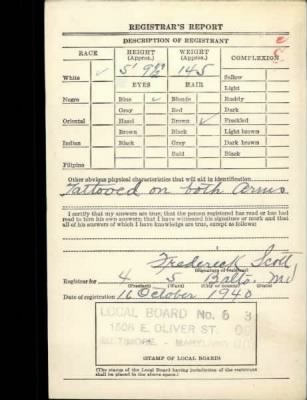 REGISTRAR'S REPORT
DESCRIPTION OF REGISTRANT
RACE HEIGHT (Approx.) WEIGHT (Approx.) COMPLEXION
White ✓ 5' 9 1/2 145 Sallow
EYES HAIR Light
Negro Blue ✓ Blonde Ruddy
Gray Red Dark
Oriental Hazel Brown ✓ Freckled
Brown Black Light brown
Indian Black Gray Dark brown
Bald Black
Filipino
Other obvious physical characteristics that will aid in identification
Tattooed on both Arms.
I certify that my answers are true; that the person registered has read or has had read to him his own answers; that I have witnessed his signature or mark and that all of his answers of which I have knowledge are true, except as follows:
Frederick Scott
(Signature of registrar)
Registrar for 4 5 Balto. Md
(Precinct) (Ward) (City or county) (State)
Date of registration 16 October 1940
LOCAL BOARD No. 6 3
1508 E. OLIVER ST.
BALTIMORE - MARYLAND
(STAMP OF LOCAL BOARD)
(The stamp of the Local Board having jurisdiction of the registrant shall be placed in the above space.)